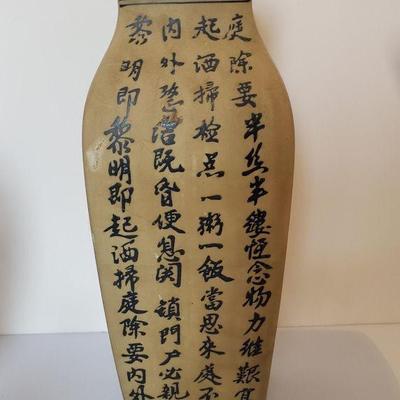 庭除要半丝半縷恆念物力維艱宜
起洒掃檢点一粥一飯當思來處不
内外整洁既昏便息関鎖門户必親
黎明即黎明即起洒掃庭除要内外